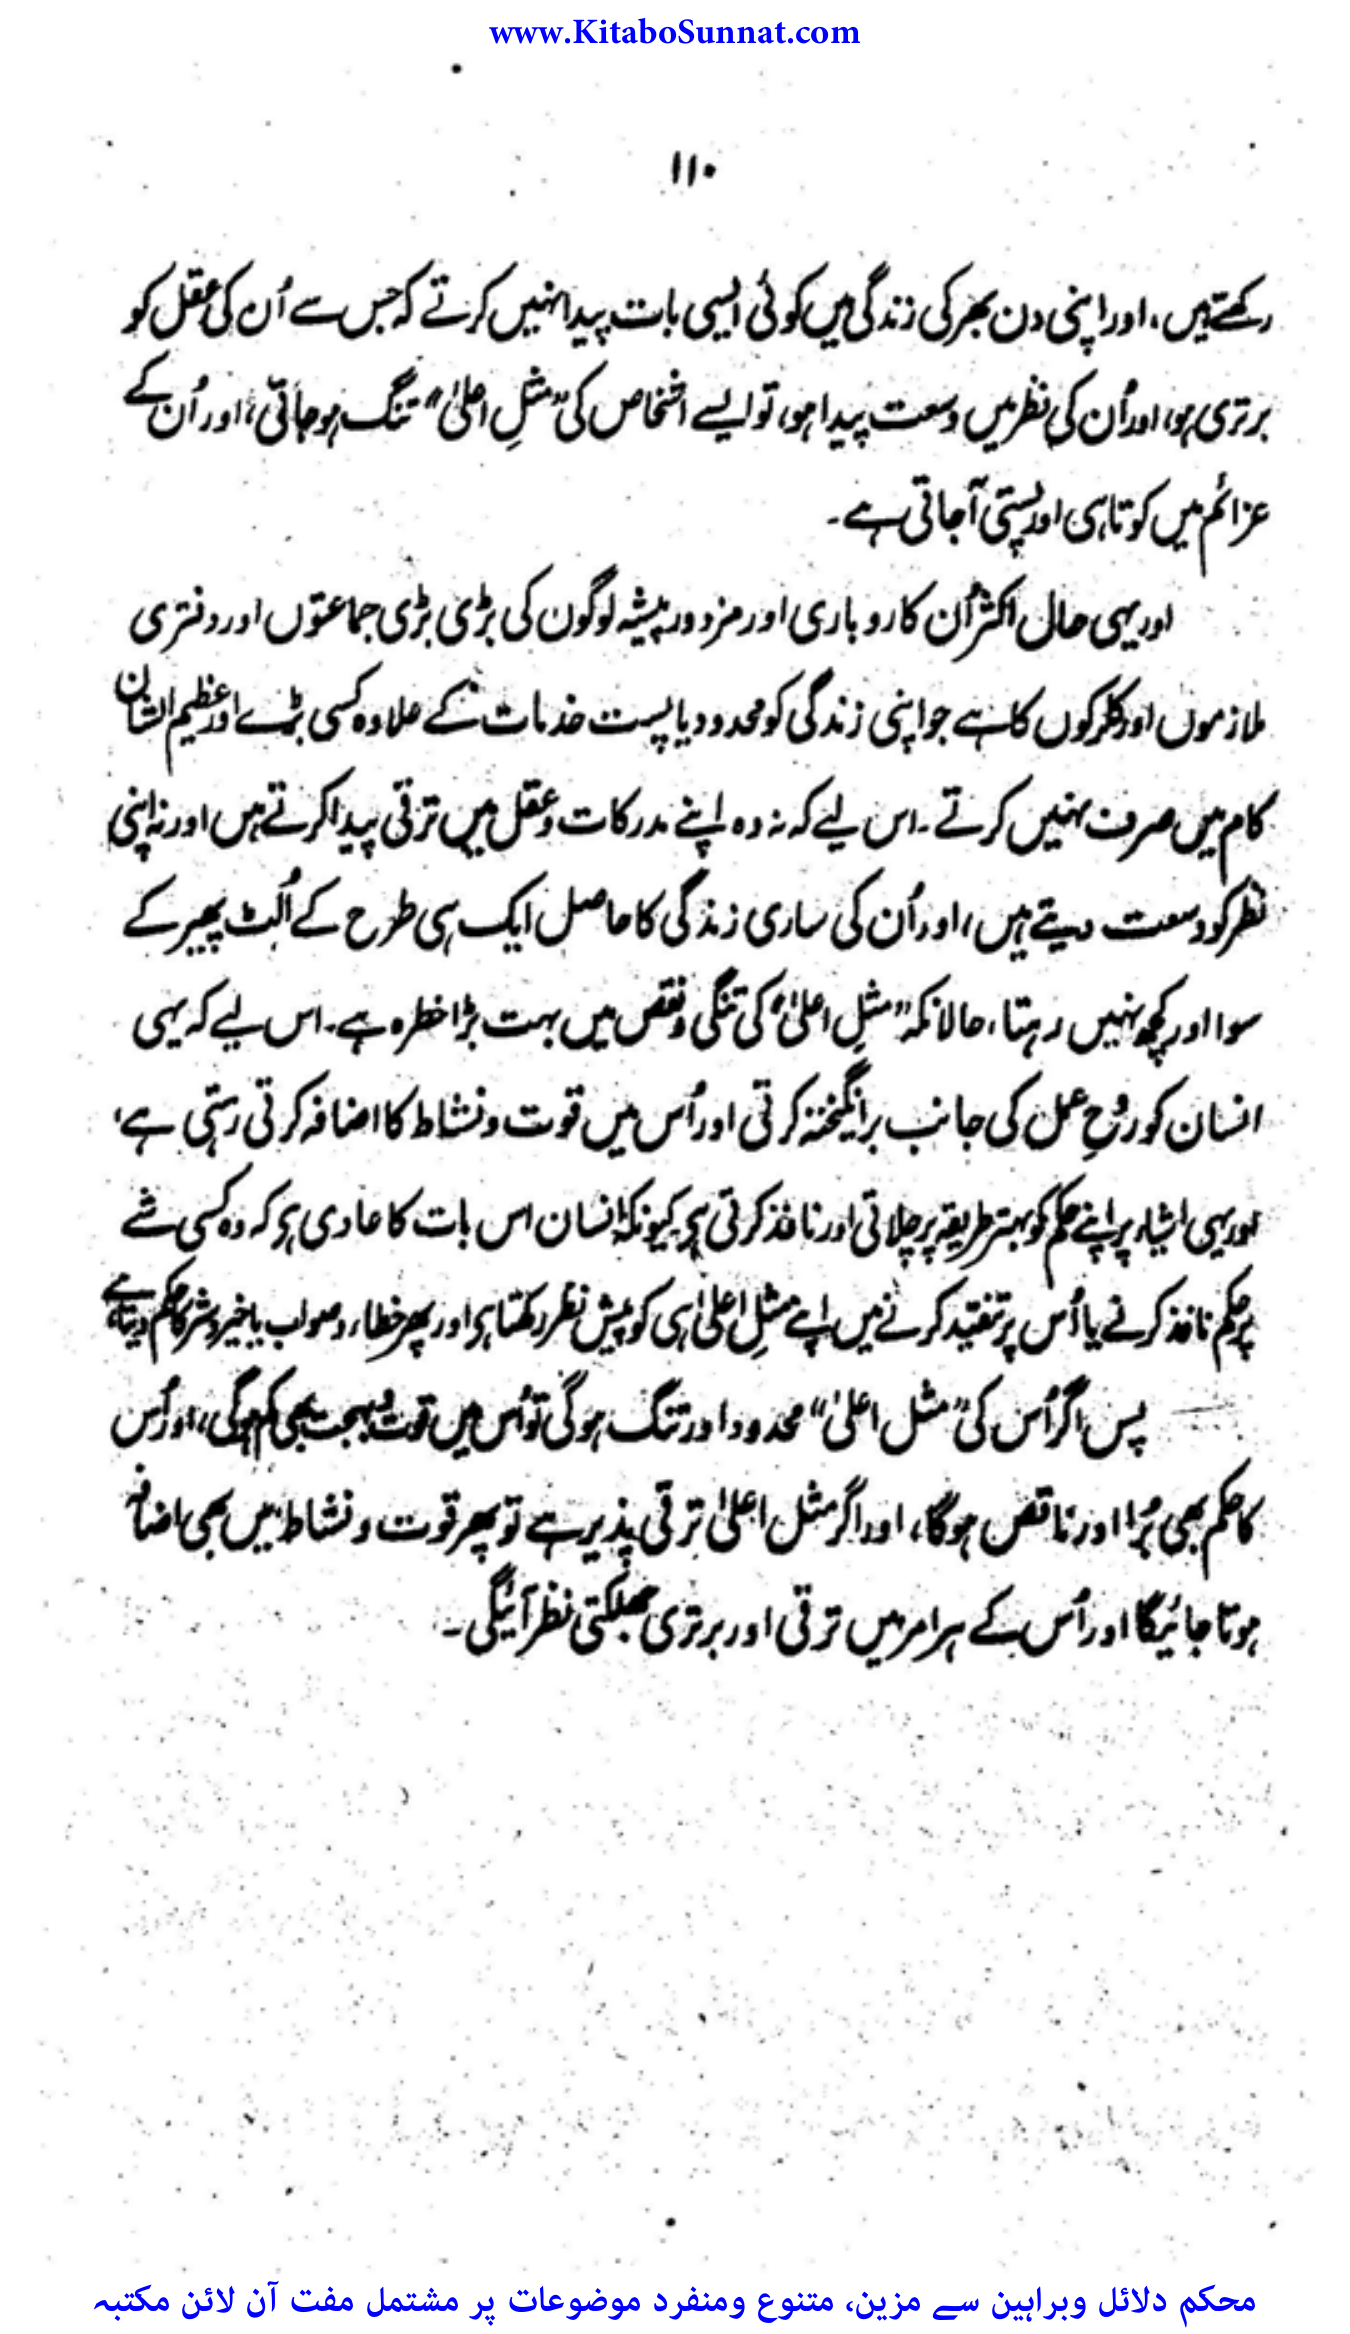 www.KitaboSunnat.com
۱۱۰
رکھتے ہیں، اور اپنی دن بھر کی زندگی میں کوئی ایسی بات پیدا نہیں کرتے کہ جس سے اُن کی عقل کو
برتری ہو، اور اُن کی نظر میں وسعت پیدا ہو، تو ایسے اشخاص کی "مثلِ اعلیٰ" تنگ ہو جاتی، اور اُن کے
عزائم میں کوتاہی اور پستی آجاتی ہے۔
اور یہی حال اکثر اُن کاروباری اور مزدور پیشہ لوگوں کی بڑی بڑی جماعتوں اور دفتری
ملازموں اور کلرکوں کا ہے جو اپنی زندگی کو محدود یا پست خدمات کے علاوہ کسی بڑے اور عظیم الشان
کام میں صرف نہیں کرتے۔ اس لیے کہ نہ وہ اپنے مدرکات و عقل میں ترقی پیدا کرتے ہیں اور نہ اپنی
نظر کو وسعت دیتے ہیں، اور اُن کی ساری زندگی کا حاصل ایک ہی طرح کے اُلٹ پھیر کے
سوا اور کچھ نہیں رہتا، حالانکہ "مثلِ اعلیٰ" کی تنگی و نقص میں بہت بڑا خطرہ ہے۔ اس لیے کہ یہی
انسان کو روحِ عمل کی جانب برانگیختہ کرتی اور اُس میں قوت و نشاط کا اضافہ کرتی رہتی ہے،
اور یہی اشیاء پر اپنے حکم کو بہتر طریقہ پر چلاتی اور نافذ کرتی ہے کیونکہ انسان اس بات کا عادی ہے کہ وہ کسی شے
پر حکم نافذ کرنے یا اُس پر تنقید کرنے میں اپنے مثلِ اعلیٰ ہی کو پیش نظر رکھتا ہے اور پھر خطاء و صواب یا خیر و شر کا حکم دیتا ہے
پس اگر اُس کی "مثل اعلیٰ" محدود اور تنگ ہوگی تو اُس میں قوت و بہجت بھی کم ہوگی، اور اُس
کا حکم بھی بُرا اور ناقص ہوگا، اور اگر مثل اعلیٰ ترقی پذیر ہے تو پھر قوت و نشاط میں بھی اضافہ
ہوتا جائیگا اور اُس کے ہر امر میں ترقی اور برتری جھلکتی نظر آئیگی۔
محکم دلائل وبراہین سے مزین، متنوع ومنفرد موضوعات پر مشتمل مفت آن لائن مکتبہ